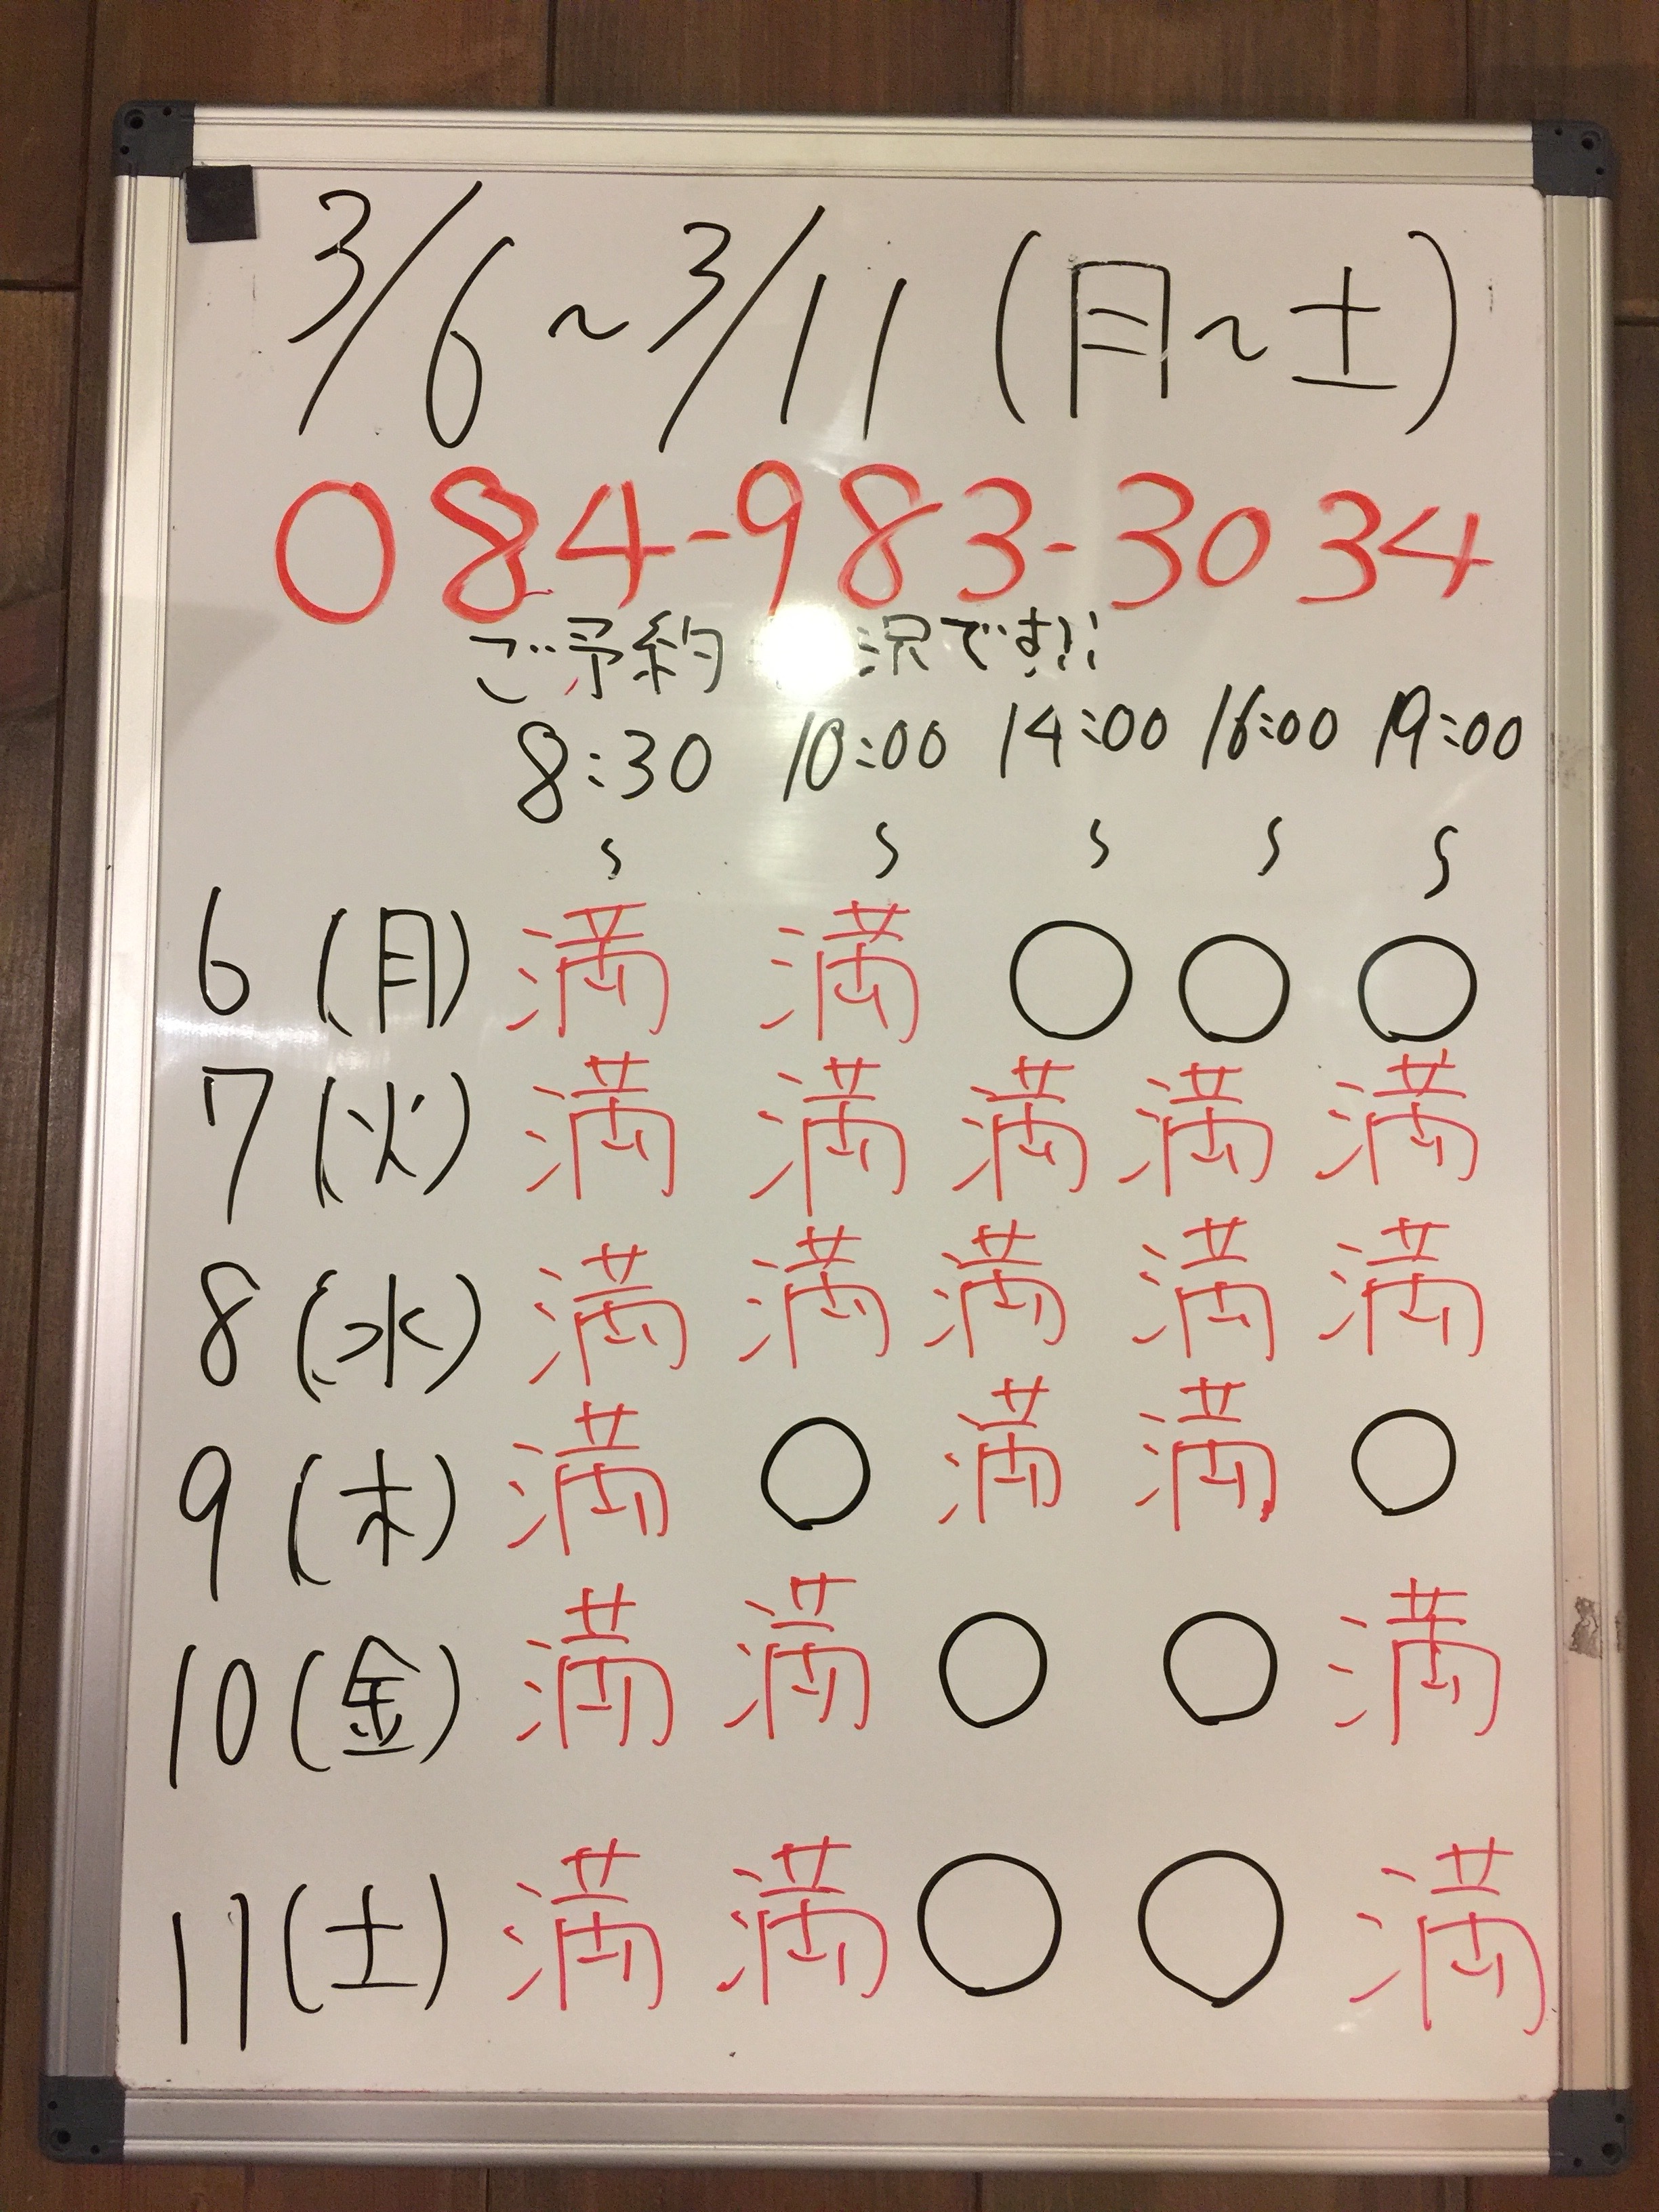 3/6~3/11(月~土)
084-983-3034
ご予約 況です!!
8:30 10:00 14:00 16:00 19:00
~ ~ ~ ~ ~
6(月) 満 満 ○ ○ ○
7(火) 満 満 満 満 満
8(水) 満 満 満 満 満
9(木) 満 ○ 満 満 ○
10(金) 満 満 ○ ○ 満
11(土) 満 満 ○ ○ 満